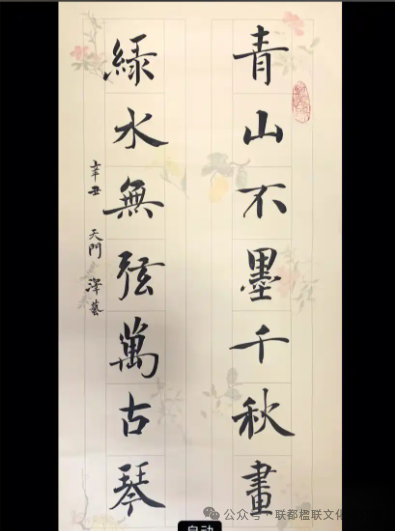 青山不墨千秋畫
綠水無弦萬古琴
辛丑 天門 澤藝
公众号·联都楹联文化
自动